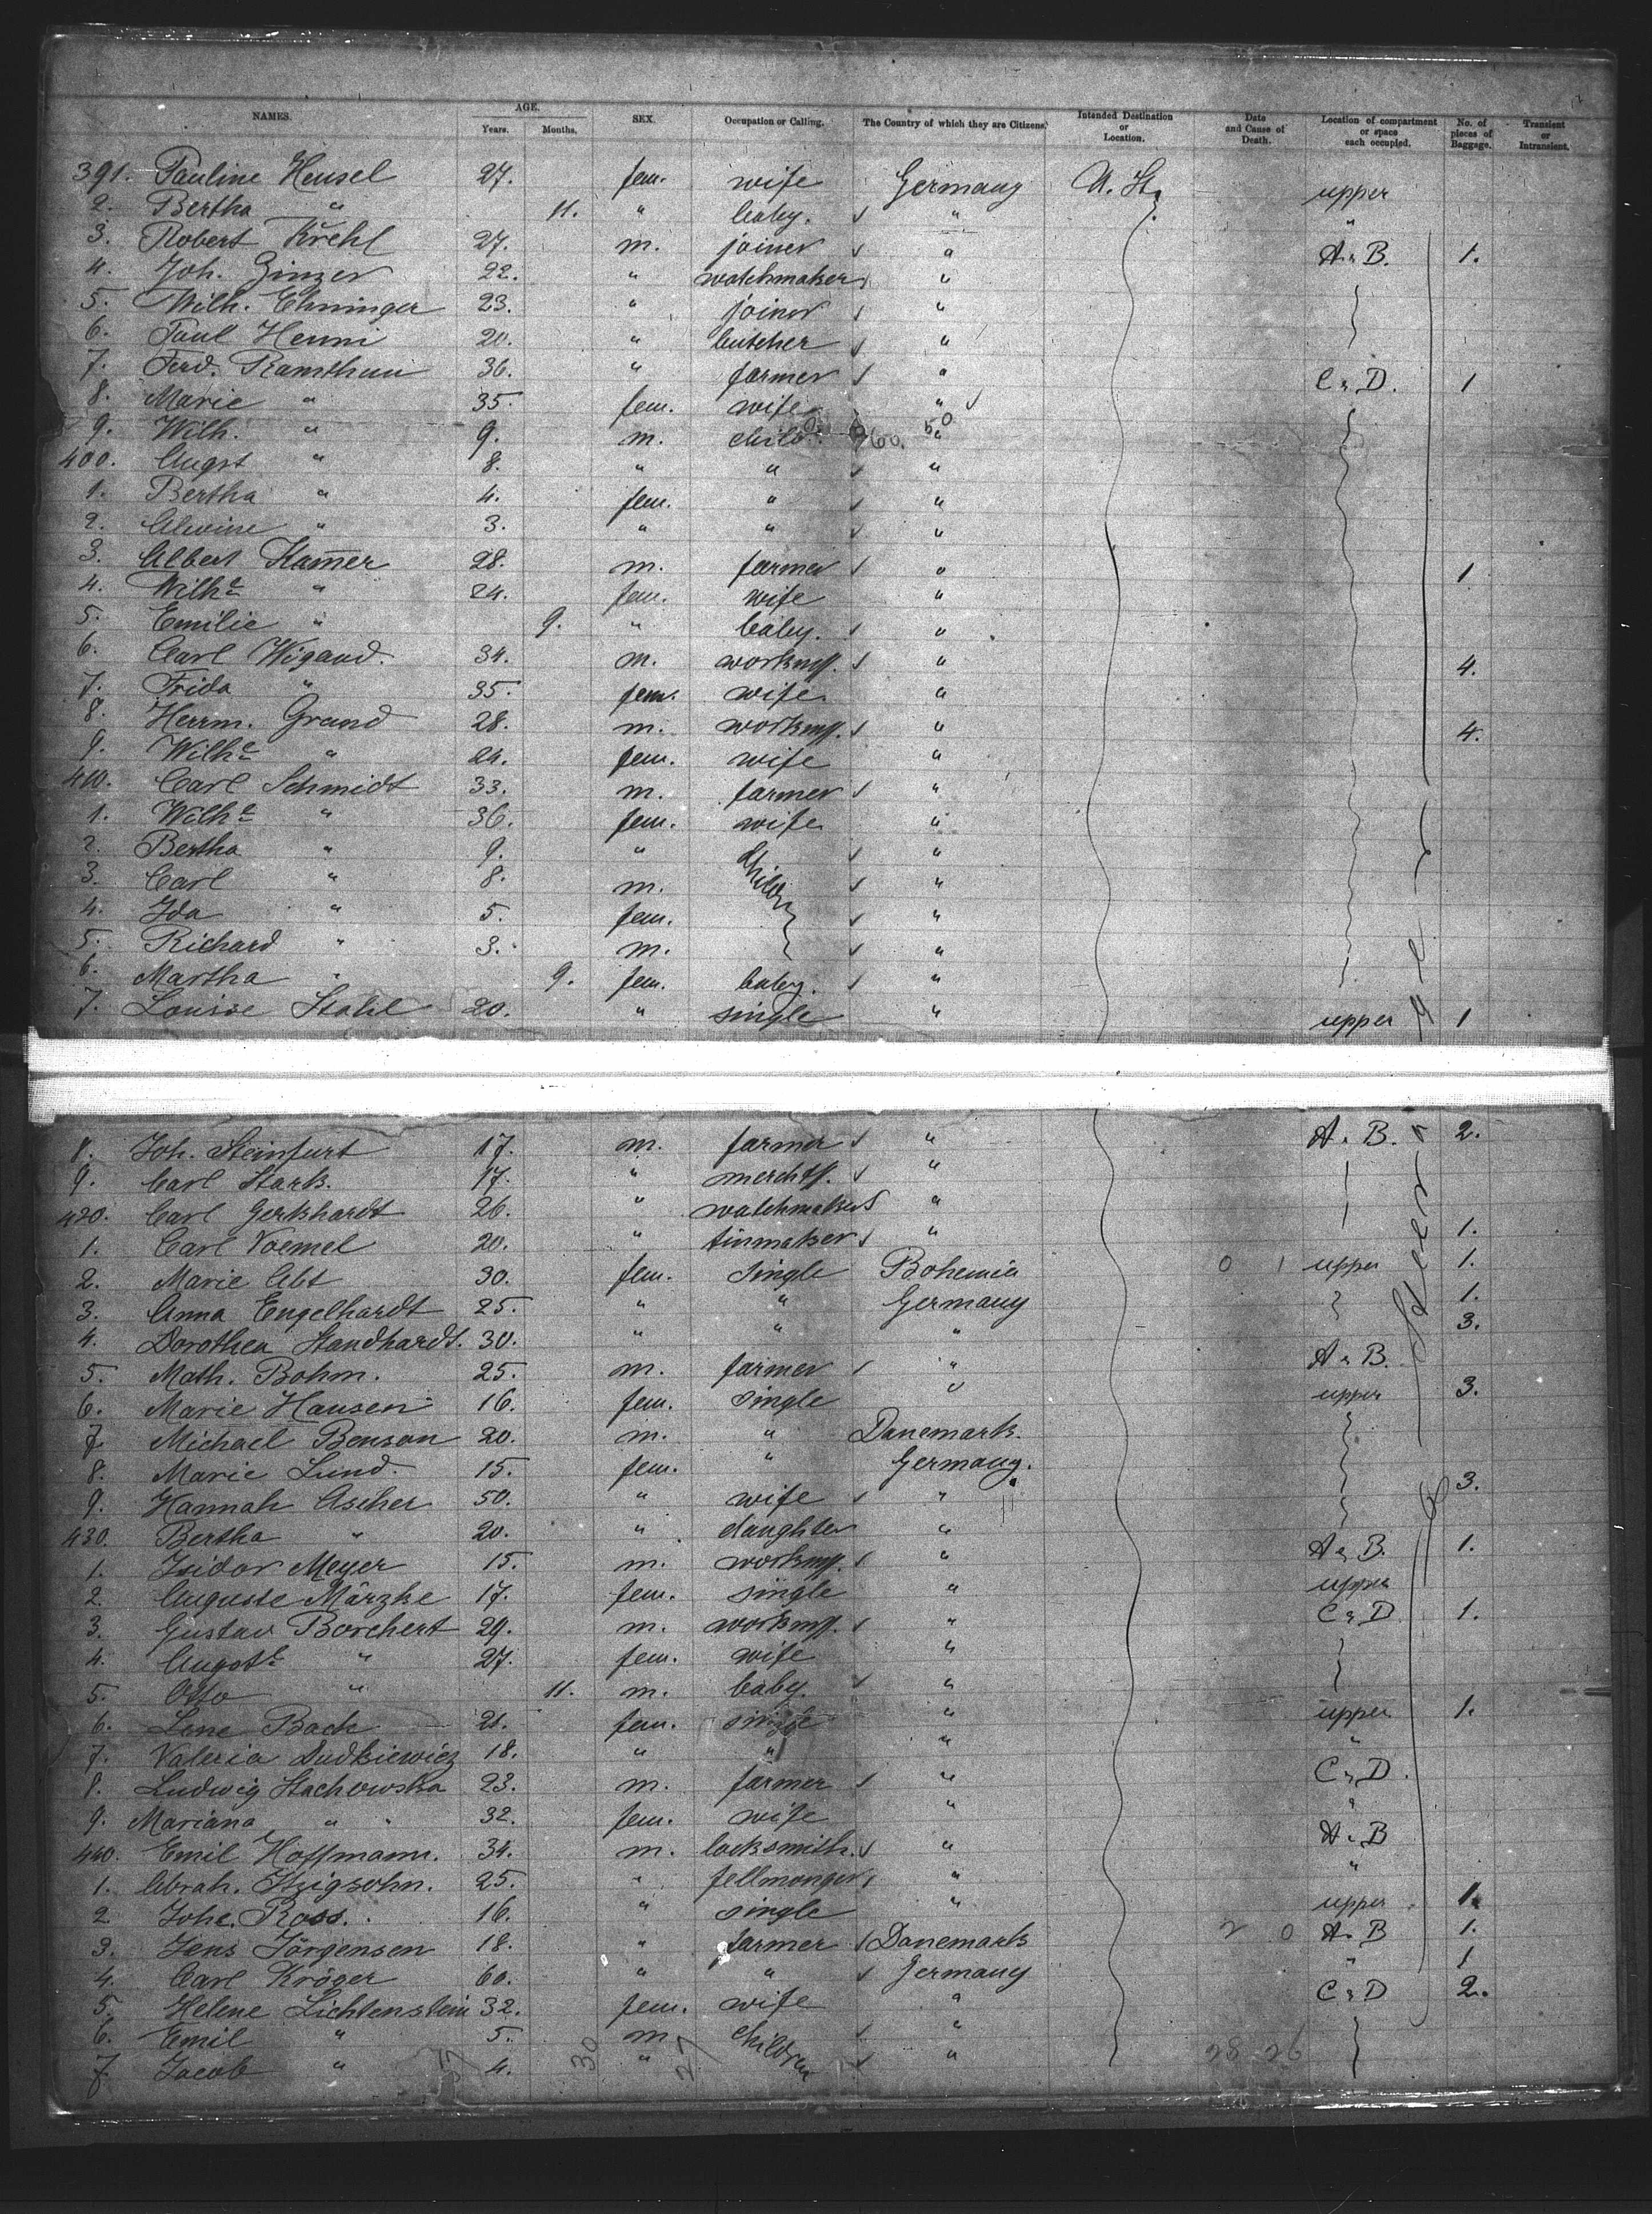 NAMES. AGE. Years. Months. SEX. Occupation or Calling. The Country of which they are Citizens. Intended Destination or Location. Date and Cause of Death. Location of compartment or space each occupied. No. of pieces of Baggage. Transient or Intransient.
391. Pauline Hensel 27. fem. wife Germany U. St. upper
2. Bertha " 11. " baby. "  "
3. Robert Krehl 27. m. joiner " A & B. 1.
4. Joh. Ginzer 22. " watchmaker "
5. Wilh. Ehninger 23. " joiner "
6. Paul Henni 20. " butcher "
7. Ferd. Ramthun 36. " farmer " C & D. 1
8. Marie " 35. fem. wife "
9. Wilh. " 9. m. child "
400. Augst " 8. " " "
1. Bertha " 4. fem. " "
2. Alwine " 3. " " "
3. Albert Kam̄er 28. m. farmer " 1
4. Wilhe " 24. fem. wife "
5. Emilie " 9. " baby. "
6. Carl Wigand. 34. m. workmg. " 4.
7. Frida " 35. fem. wife "
8. Herrm. Grand 28. m. workmg. " 4.
9. Wilhe " 24. fem. wife "
410. Carl Schmidt 33. m. farmer "
1. Wilhe " 36. fem. wife "
2. Bertha " 9. " "
3. Carl " 8. m. "
4. Ida " 5. fem. "
5. Richard " 3. m. "
6. Martha " 9. fem. baby. "
7. Louise Stahl 20. " single " upper 1
8. Joh. Steinfurt 17. m. farmer " A. B. 2.
9. Carl Stark. 17. " "
420. Carl Gerkhardt 26. " watchmaker "
1. Carl Voemel 20. " tinmaker " 1.
2. Marie Abt 30. fem. single Bohemia 0 1 upper 1.
3. Anna Engelhardt 25. " " Germany 1.
4. Dorothea Standhardt. 30. " " " 3.
5. Math. Bohm. 25. m. farmer " A & B.
6. Marie Hansen 16. fem. single " upper 3.
7. Michael Benson 20. m. " Danemark.
8. Marie Lund. 15. fem. " Germany.
9. Hannah Ascher 50. " wife " 3.
430. Bertha " 20. " daughter "
1. Isidor Meyer 15. m. workmg. " A & B. 1.
2. Auguste Märzke 17. fem. single " upper
3. Gustav Borchert 29. m. workmg. " C & D. 1.
4. Auguste " 27. fem. wife "
5. Otto " 11. m. baby. "
6. Lene Bach 21. fem. single " upper 1.
7. Valeria Dudkiewicz 18. " " " "
8. Ludwig Stachowska 23. m. farmer " C & D.
9. Mariana " 32. fem. wife " "
440. Emil Hoffmann. 34. m. locksmith. " A & B
1. Abrah. Itzigsohn. 25. " fellmonger " "
2. Johe. Ross. 16. " single " upper 1.
3. Jens Jörgensen 18. " farmer Danemark 2 0 A. B 1.
4. Carl Kröger 60. " " Germany " 1
5. Helene Lichtenstein 32. fem. wife " C & D 2.
6. Emil " 5. m. children "
7. Jacob " 4. " "
30 27 28 26